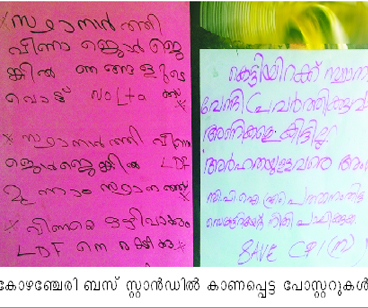 സ്ഥാനാർത്ഥി
വീണാ ജോർജ്ജെ
ങ്കിൽ ഞങ്ങളുടെ
വോട്ട് NOTA ക്ക്
സ്ഥാനാർത്ഥി വീണാ
ജോർജ്ജെങ്കിൽ LDF
മൂന്നാം സ്ഥാനത്ത്
വീണയെ ഒഴിവാക്കൂ
LDF നെ രക്ഷിക്കൂ
കെട്ടിയിറക്ക്
വേണ്ടി പ്രവർത്തിക്കുവാൻ
അണികളെ കിട്ടില്ല
അർഹതയുള്ളവരെ
സി.പി.ഐ (എം) പത്തനംതിട്ട
നീതി പാലിക്കുക
SAVE CPI (M)
കോഴഞ്ചേരി ബസ് സ്റ്റാൻഡിൽ കാണപ്പെട്ട പോസ്റ്ററുകൾ